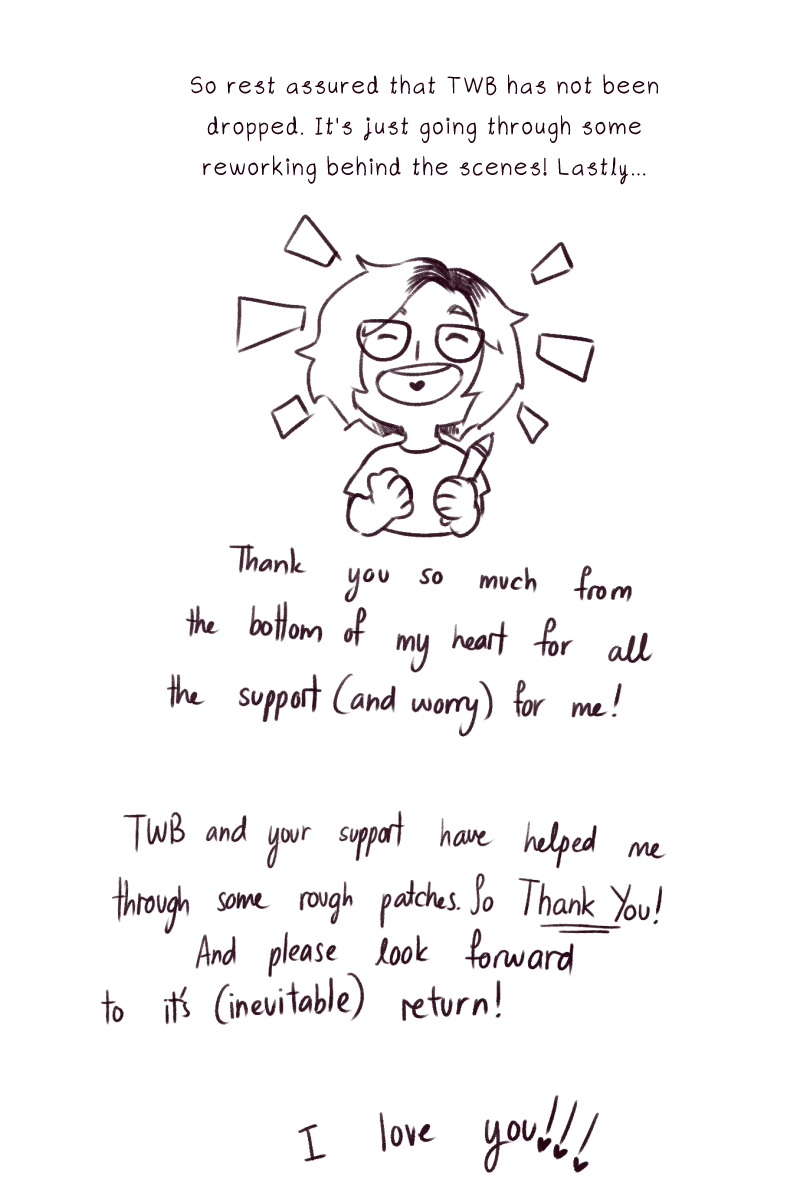 So rest assured that TWB has not been
dropped. It's just going through some
reworking behind the scenes! Lastly...
Thank you so much from
the bottom of my heart for all
the support (and worry) for me!
TWB and your support have helped me
through some rough patches. So Thank You!
And please look forward
to it's (inevitable) return!
I love you!!!